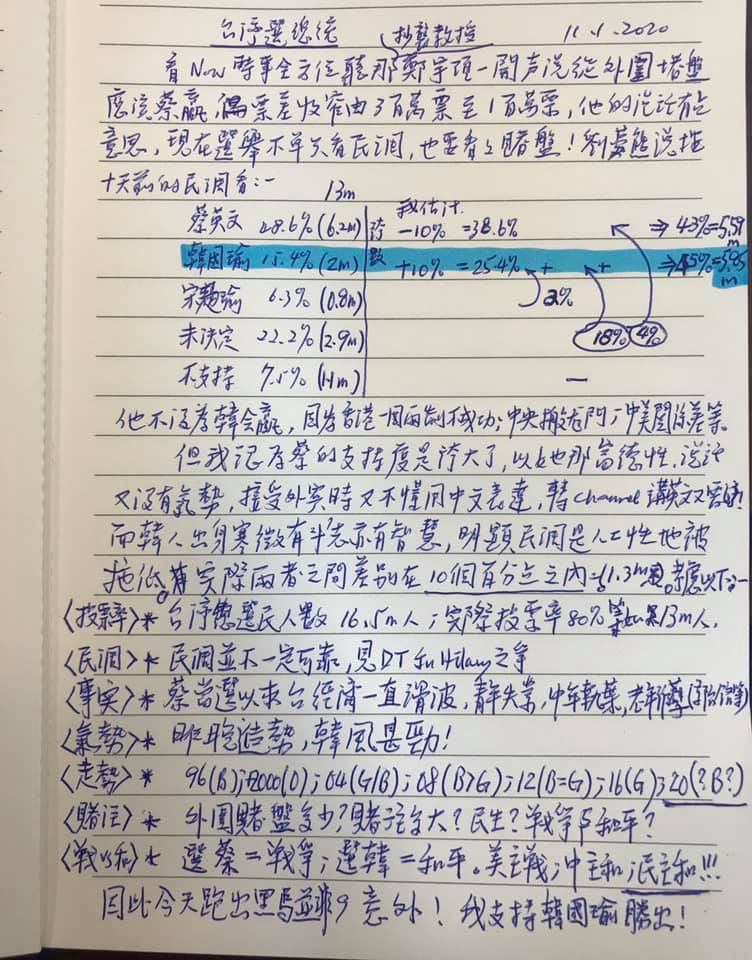 台灣選總統 抄寫教授 11.1.2020
看Now時事全方位聽那鄭宇碩一開声說從外圍賭盤
應該蔡贏,票差收窄由3百萬票至1百萬票,他的說話有点
意思,現在選舉不單只看民調,也要看上賭盤!劉夢熊說按
十天前的民調看:- 13m
我估計
蔡英文 48.6%(6.2m) 誇 -10% =38.6% ⇒43%=5.59m
韓國瑜 15.4%(2m) 數 +10% =25.4% + + ⇒45%=5.85m
宋楚瑜 6.3%(0.8m) 2%
未決定 22.2%(2.9m) 18% 4%
不支持 7.5%(1m) —
他不認為韓會贏,因為香港一國兩制不成功;中央搬龍門;中美關係差等。
但我認為蔡的支持度是誇大了,以她那當德性,說話
又沒有氣勢,接受外家時又不懂用中文表達,轉channel講英文又
而韓人出身寒微有斗志亦有智慧,明顯民調是人工性地被
拖低。實際兩者之間差別在10個百分点之內=1.3m票。考慮以下:-
<投票率>* 台灣總選民人數16.5m人;實際投票率80%等如果13m人.
<民調>* 民調並不一定可靠,見DT和Hilary之爭
<事实>* 蔡當選以來台經濟一直滑波,青年失業,中年執葉,老年
<氣勢>* 昨晚造勢,韓風甚勁!
<走勢>* 96(B);2000(O);04(G/B);08(B>G);12(B=G);16(G);20(?B?)
<賭注>* 外圍賭盤多少?賭注多大?民生?戰爭与和平?
<戰vs和>* 選蔡=戰爭;選韓=和平。美主戰;中主和;民主和!!!
因此今天跑出黑馬並非意外!我支持韓國瑜勝出!